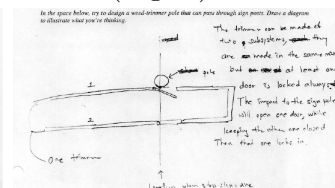 In the space below, try to design a weed-trimmer pole that can pass through sign posts. Draw a diagram
to illustrate what you're thinking.
The trimmer can be made of
two subsystems, they
are made in the same
but at least one
pole
door is locked always.
The impact to the sign pole
will open one door, while
keeping the other one closed
Then that one locks in.
1
2
One trimmer